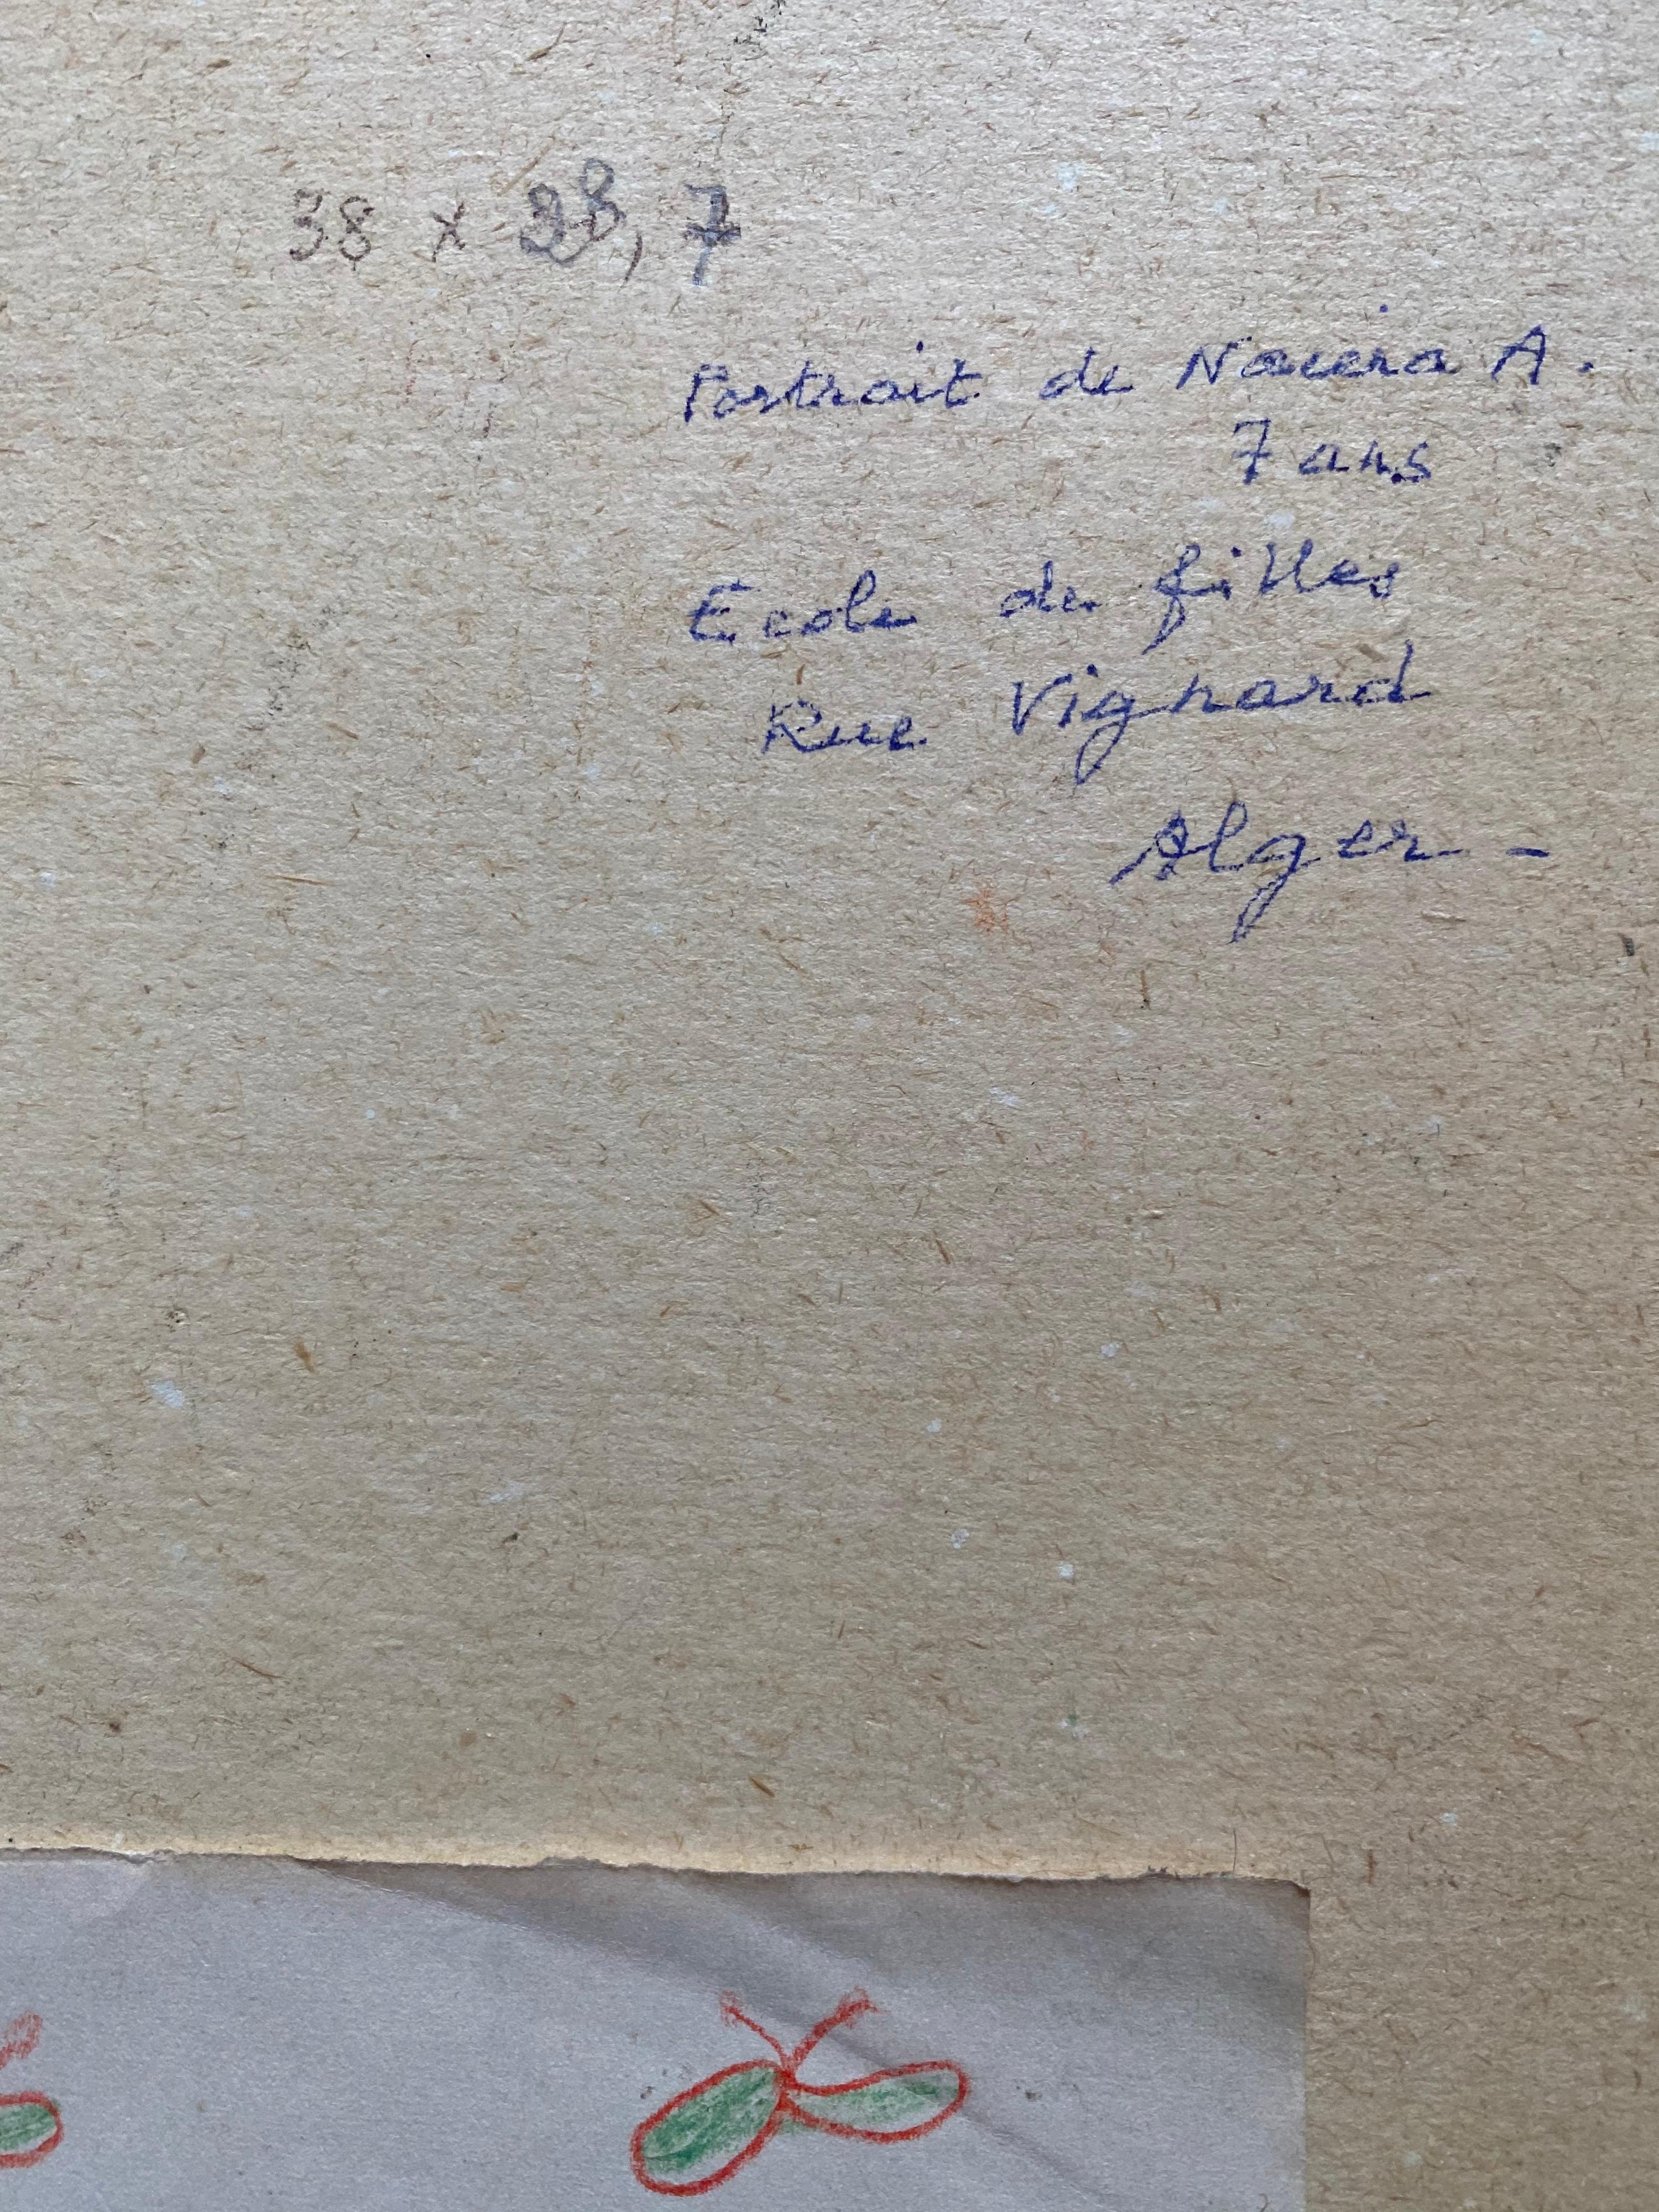 38 x 28,7
Portrait de Naciera A.
7 ans
Ecole de filles
Rue Vignard
Alger -